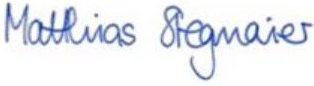 Matthias Stegmaier